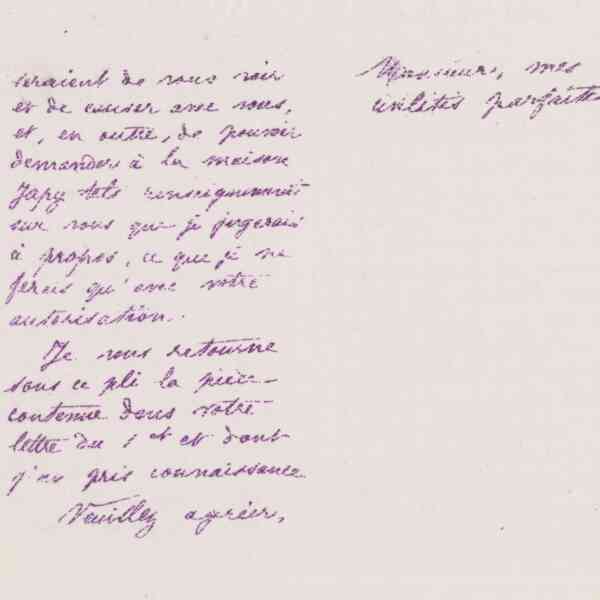 seraient de vous voir
et de causer avec vous,
et, en outre, de pouvoir
demander à la maison
Japy tels renseignements
sur vous que je jugerais
à propos, ce que je ne
ferais qu'avec votre
autorisation.
Je vous retourne
sous ce pli la pièce
contenue dans votre
lettre du 1er ct et dont
j'ai pris connaissance
Veuillez agréer,
Monsieur, mes
civilités parfaites